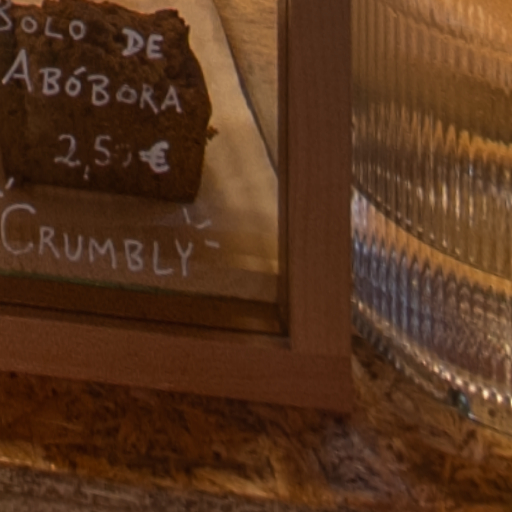 BOLO DE
ABÓBORA
2,50 €
CRUMBLY